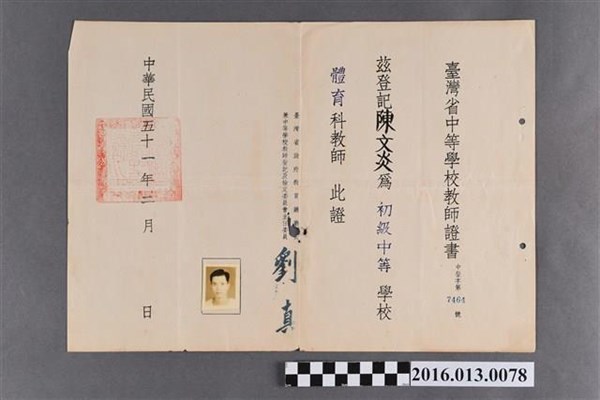 臺灣省中等學校教師證書
中登字第7464號
茲登記陳文炎為初級中等學校
體育科教師 此證
臺灣省政府教育廳廳長
兼中等學校教師登記及檢定委員會主任委員
劉真
中華民國五十一年二月 日
2016.013.0078